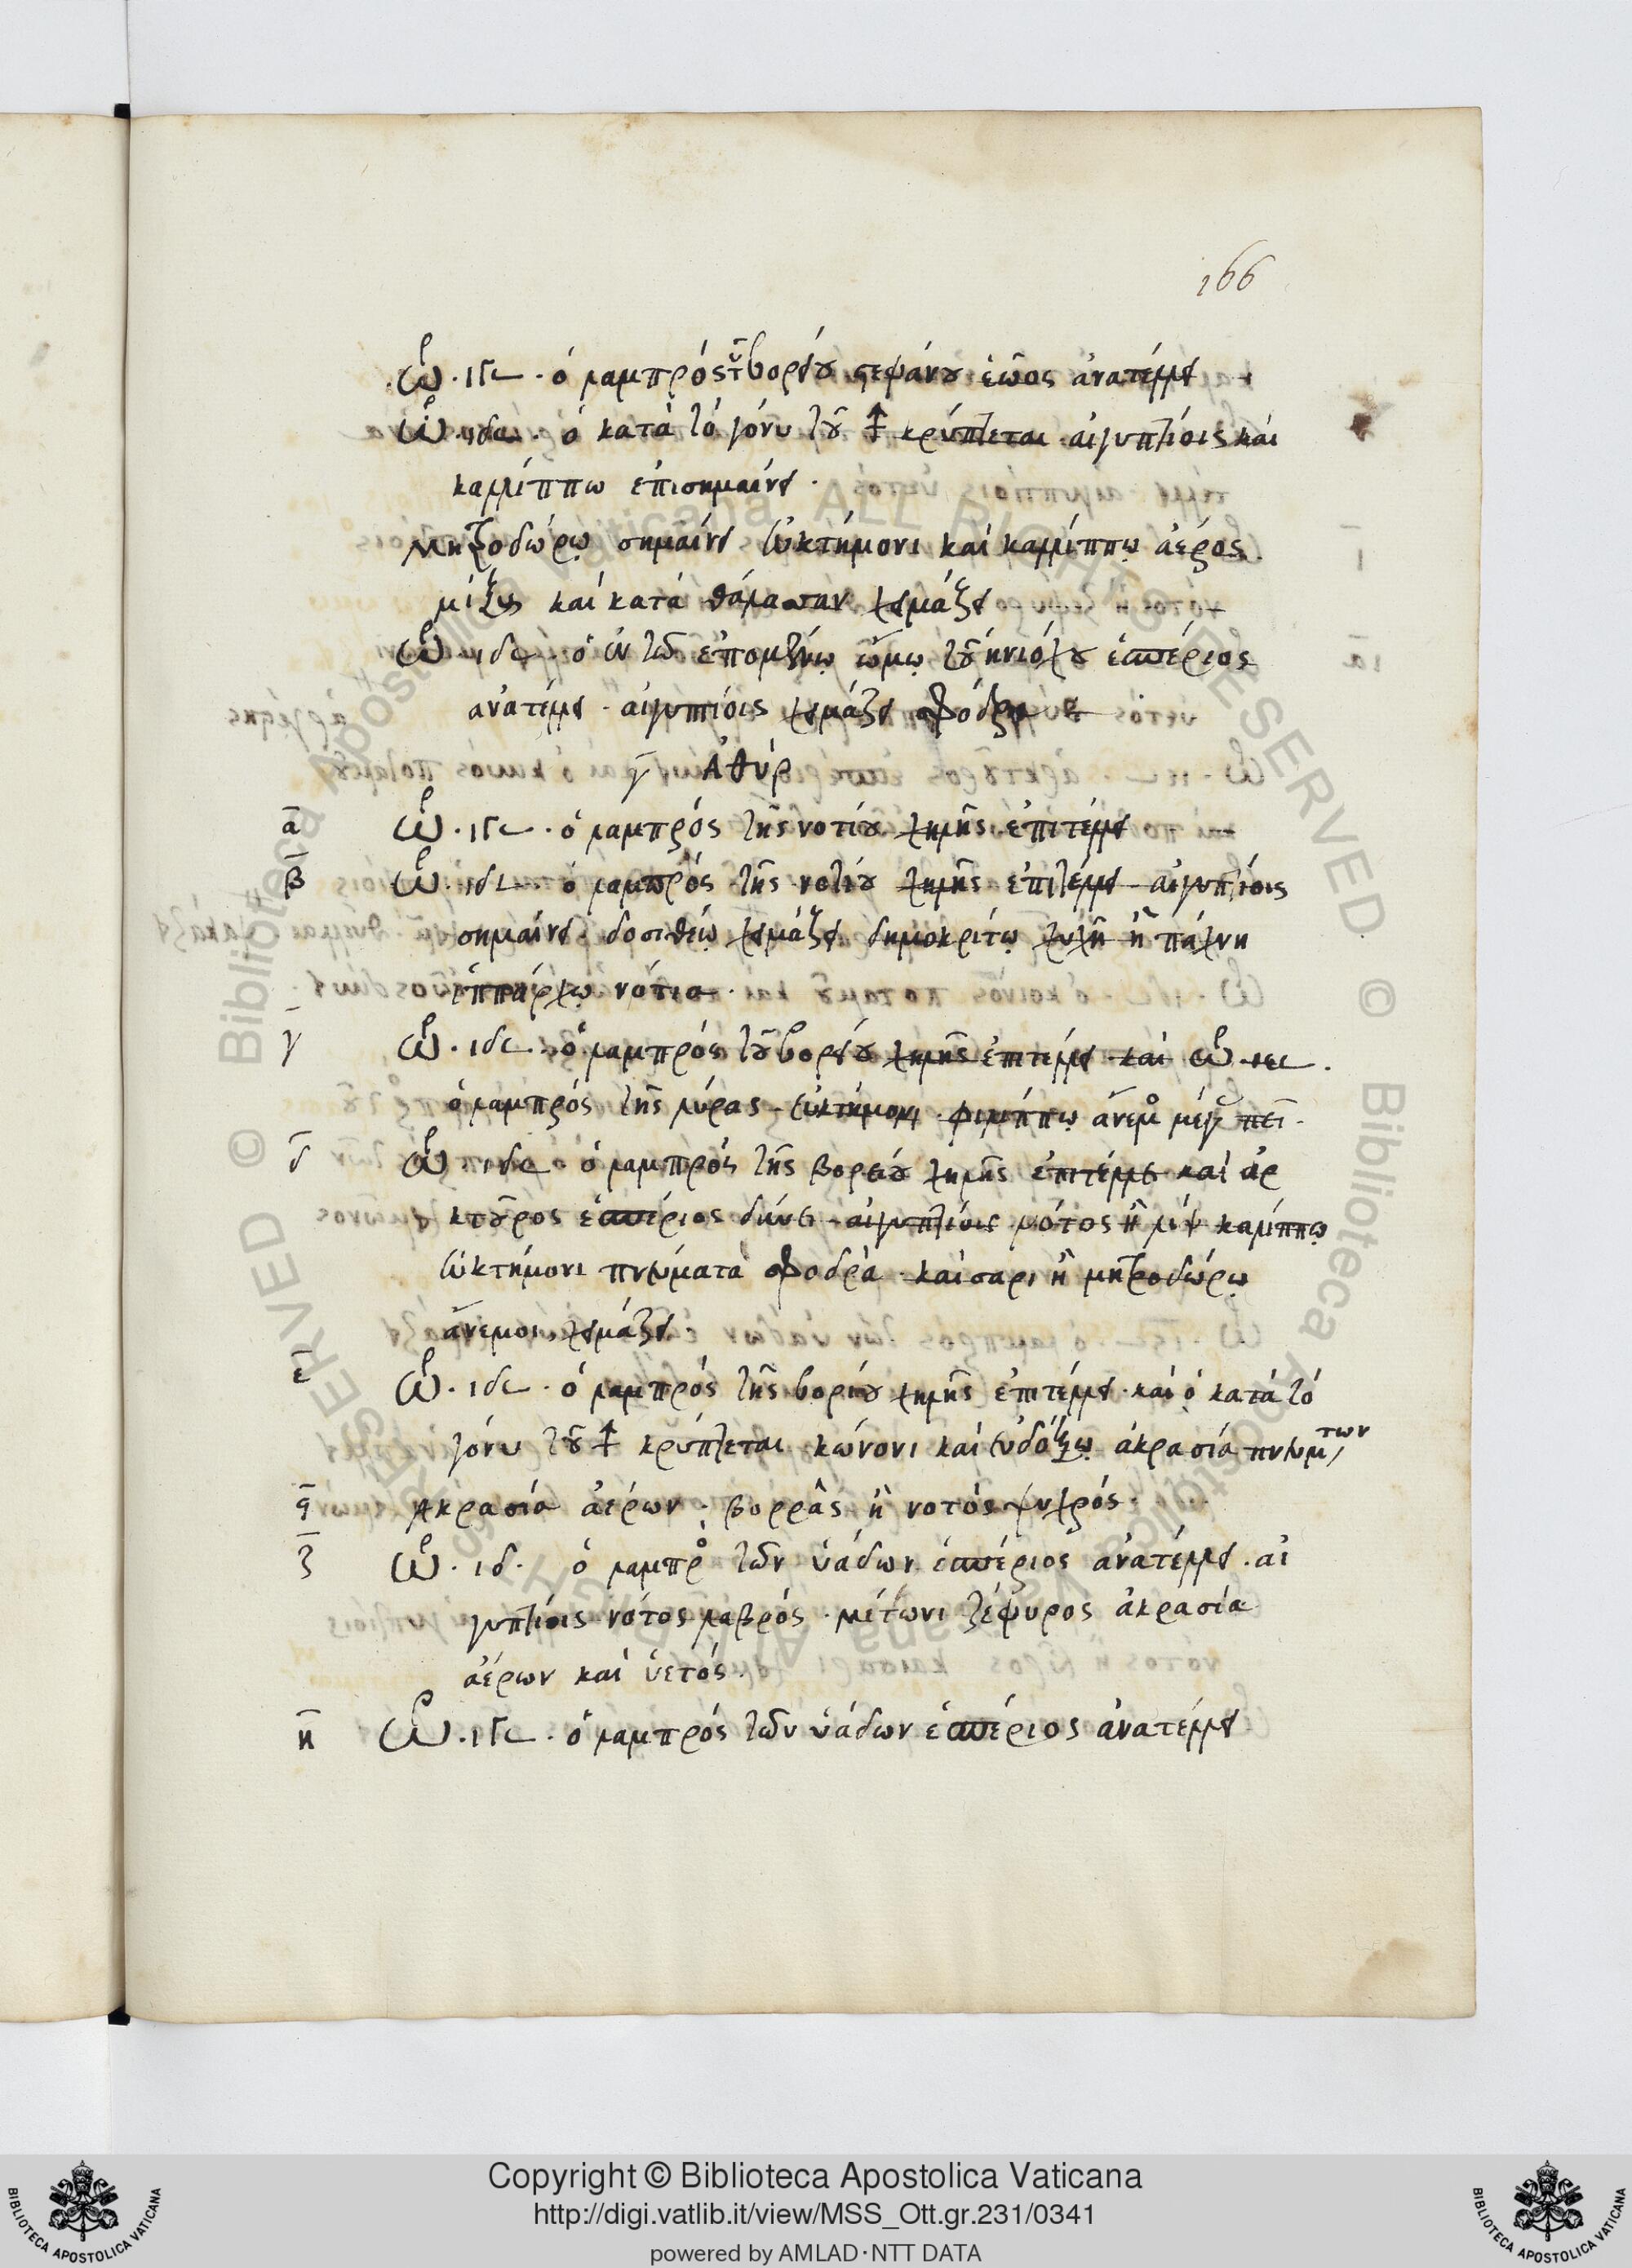 166
ὥρ. ιγ 𐅵. ὁ λαμπρὸς τοῦ βορείου στεφάνου ἑῶος ἀνατέλλει
ὥρ. ιδ 𐅵. ὁ κατὰ τὸ γόνυ τοῦ ♐ κρύπτεται αἰγυπτίοις καὶ
καλλίππω ἐπισημαίνει.
Μητροδώρῳ σημαίνει εὐκτήμονι καὶ καλλίππῳ ἀέρος
μίξις καὶ κατὰ θάλασσαν χειμάζει
ὥρ. ιδ 𐅵. ὁ ἐν τῶ ἑπομένῳ ὤμῳ τοῦ ἡνιόχου ἑσπέριος
ἀνατέλλει. αἰγυπτίοις χειμάζει σφόδρα
γ̄ Ἀθὺρ
ᾱ ὥρ. ιγ 𐅵. ὁ λαμπρὸς τῆς νοτίου χηλῆς ἐπιτέλλει
β̄ ὥρ. ιδ 𐅵. ὁ λαμπρὸς τῆς νοτίου χηλῆς ἐπιτέλλει αἰγυπτίοις
σημαίνει. δοσιθέῳ χειμάζει δημοκρίτῳ ψυχὴ ἢ πάχνη
ἱππάρχῳ νότια.
γ̄ ὥρ. ιδ 𐅵. ὁ λαμπρὸς τοῦ βορείου χηλῆς ἐπιτέλλει καὶ ὥρ. ιε 𐅵.
ὁ λαμπρὸς τῆς λύρας. εὐκτήμονι φιλίππῳ ἄνεμο μέγ πει.
δ̄ ὥρ. ιδ 𐅵 ὁ λαμπρὸς τῆς βορείου χηλῆς ἐπιτέλλει καὶ ἀρ
κτοῦρος ἑσπέριος δύνει. αἰγυπτίοις νότος ἢ λίψ καλίππῳ
εὐκτήμονι πνεύματα σφοδρὰ. καίσαρι ἢ μητροδώρῳ
ἄνεμοι, χειμάζει.
ε̄ ὥρ. ιδ 𐅵. ὁ λαμπρὸς τῆς βορείου χηλῆς ἐπιτέλλει. καὶ ὁ κατὰ τὸ
γόνυ τοῦ ♐ κρύπτεται κώνονι καὶ εὐδόξῳ ἀκρασία πνευμάτων
ϛ̄ Ἀκρασία ἀέρων. βορρᾶς ἢ νοτὸς ψυχρός.
ζ̄ ὥρ. ιδ. ὁ λαμπρὸ τῶν ὑάδων ἑσπέριος ἀνατέλλει. αἰ
γυπτίοις νότος λαβρός. Μέτωνι ζέφυρος ἀκρασία
ἀέρων καὶ ὑετός.
η̄ ὥρ. ιγ 𐅵. ὁ λαμπρὸς τῶν ὑάδων ἑσπέριος ἀνατέλλει
Copyright © Biblioteca Apostolica Vaticana
http://digi.vatlib.it/view/MSS_Ott.gr.231/0341
powered by AMLAD·NTT DATA